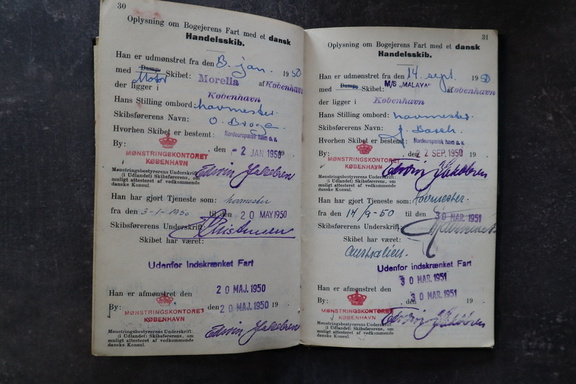 30
Oplysning om Bogejerens Fart med et dansk
Handelsskib.
Han er udmønstret fra den 3. jan. 1950
med Damp Skibet: Morelia af København
Motor
der ligger i København
Hans Stilling ombord: havnmester
Skibsførerens Navn: O.
Hvorhen Skibet er bestemt: Nordeuropæisk fart m. v.
By: , den - 2 JAN. 1950
MØNSTRINGSKONTORET
KØBENHAVN
Edvin Jakobsen
Mønstringsbestyrerens Underskrift
(i Udlandet: Skibsførerens, om
muligt attesteret af vedkommende
danske Konsul.
Han har gjort Tjeneste som:
fra den 3-1-1950 til den 20 MAJ 1950
Skibsførerens Underskrift:
Skibet har været:
Udenfor indskrænket Fart
Han er afmønstret den 20 MAJ. 1950
By: den 20 MAJ. 1950
MØNSTRINGSKONTORET
KØBENHAVN
Edvin Jakobsen
Mønstringsbestyrerens Underskrift
(i Udlandet: Skibsførerens, om
muligt attesteret af vedkommende
danske Konsul.
31
Oplysning om Bogejerens Fart med et dansk
Handelsskib.
Han er udmønstret fra den 14. sept. 1950
med Damp Skibet: M/S "MALAYA" af København
der ligger i København
Hans Stilling ombord: hovmester
Skibsførerens Navn:
Hvorhen Skibet er bestemt: Nordeuropæisk fart m. v.
By: , den 2 SEP. 1950
MØNSTRINGSKONTORET
KØBENHAVN
Edvin Jakobsen
Mønstringsbestyrerens Underskrift
(i Udlandet: Skibsførerens, om
muligt attesteret af vedkommende
danske Konsul.
Han har gjort Tjeneste som: hovmester
fra den 14/9-50 til den 30 MAR. 1951
Skibsførerens Underskrift:
Skibet har været:
Australien.
Udenfor indskrænket Fart
Han er afmønstret den 30 MAR. 1951
By: den 30 MAR. 1951
MØNSTRINGSKONTORET
KØBENHAVN
Edvin Jakobsen
Mønstringsbestyrerens Underskrift
(i Udlandet: Skibsførerens, om
muligt attesteret af vedkommende
danske Konsul.